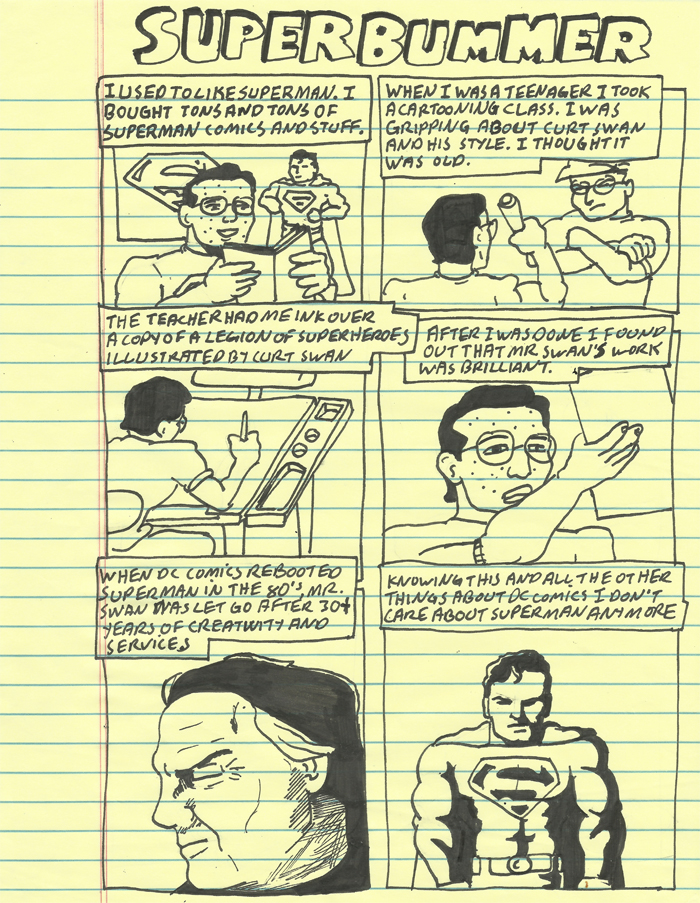 SUPERBUMMER
I USED TO LIKE SUPERMAN. I
BOUGHT TONS AND TONS OF
SUPERMAN COMICS AND STUFF.
WHEN I WAS A TEENAGER I TOOK
A CARTOONING CLASS. I WAS
GRIPPING ABOUT CURT SWAN
AND HIS STYLE. I THOUGHT IT
WAS OLD.
THE TEACHER HAD ME INK OVER
A COPY OF A LEGION OF SUPERHEROES
ILLUSTRATED BY CURT SWAN
AFTER I WAS DONE I FOUND
OUT THAT MR. SWAN'S WORK
WAS BRILLIANT.
WHEN DC COMICS REBOOTED
SUPERMAN IN THE 80'S, MR.
SWAN WAS LET GO AFTER 30+
YEARS OF CREATIVITY AND
SERVICES
KNOWING THIS AND ALL THE OTHER
THINGS ABOUT DC COMICS I DON'T
CARE ABOUT SUPERMAN ANYMORE